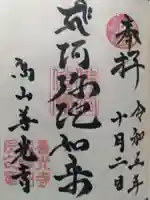 奉拝
令和五年
十月二日
阿弥陀如来
高山善光寺
善光寺